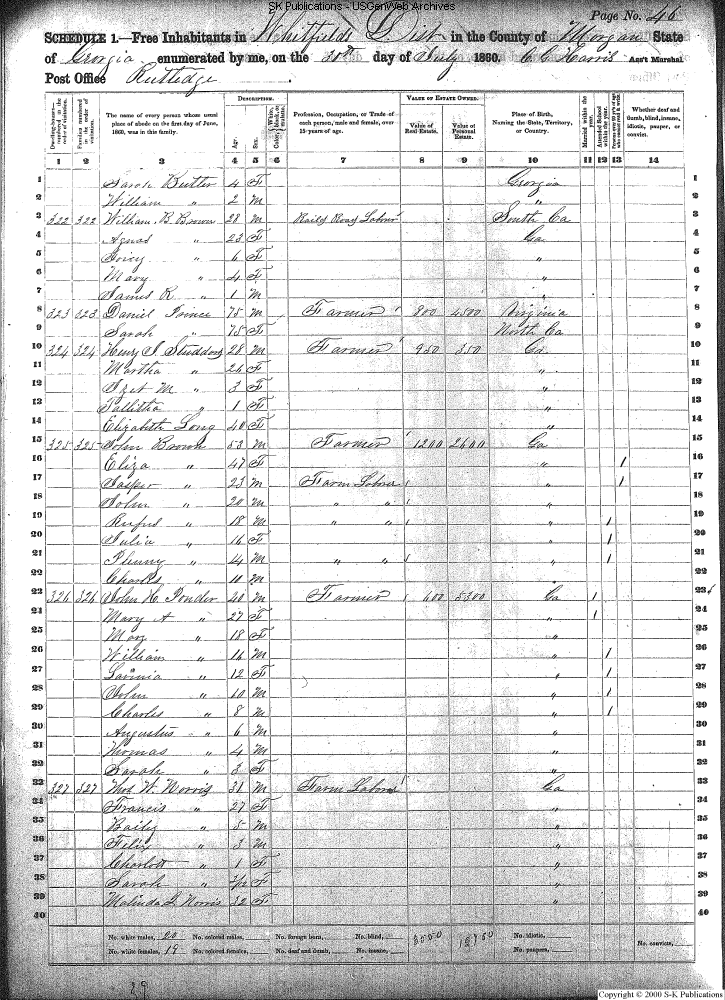 SK Publications - USGenWeb Archives
Page No. 46
SCHEDULE 1.—Free Inhabitants in Whitfields Dist in the County of Morgan State
of Georgia enumerated by me, on the 30th day of July 1860. C. C. Harris Ass't Marshal
Post Office Rutledge
DESCRIPTION. VALUE OF ESTATE OWNED.
Dwelling-houses—numbered in the order of visitation.
Families numbered in the order of visitation.
The name of every person whose usual place of abode on the first day of June, 1860, was in this family.
Age.
Sex.
Color, White, black, or mulatto.
Profession, Occupation, or Trade of each person, male and female, over 15 years of age.
Value of Real Estate.
Value of Personal Estate.
Place of Birth, Naming the State, Territory, or Country.
Married within the year.
Attended School within the year.
Whether deaf and dumb, blind, insane, idiotic, pauper, or convict.
1 2 3 4 5 6 7 8 9 10 11 12 13 14
1 Sarah Butler 4 F Georgia 1
2 William " 2 M " 2
3 322 322 William B Brown 28 M Rail Road South Ca 3
4 Agnas " 23 F Ga 4
5 " 6 F " 5
6 Mary " 4 F " 6
7 James R " 1 M " 7
8 323 323 Daniel Prince 75 M Farmer 800 4500 Virginia 8
9 Sarah " 75 F North Ca 9
10 324 324 28 M Farmer 950 350 Ga 10
11 Martha " 26 F " 11
12 M " 3 F " 12
13 Tallitha " 1 F " 13
14 Elizabeth Long 40 F " 14
15 325 325 John Brown 53 M Farmer 1200 2600 Ga 15
16 Eliza " 47 F " / 16
17 Jasper " 23 M Farm " / 17
18 John " 20 M " " " 18
19 Rufus " 18 M " " " / 19
20 Julia " 16 F " / 20
21 " 14 M " " " / 21
22 Charles " 10 M " 22
23 326 326 John H. Ponder 20 M Farmer 600 5300 Ga / 23
24 Mary A " 27 F " / 24
25 " 18 F " 25
26 William " 16 M " / 26
27 Lavinia " 12 F " / 27
28 John " 10 M " / 28
29 Charles " 8 M " / 29
30 Augustus " 6 M " 30
31 Thomas " 4 M " 31
32 Sarah " 3 F " 32
33 327 327 Thos W. Norris 31 M Farm Ga 33
34 Francis " 27 F " 34
35 Baily " 5 M " 35
36 " 3 M " 36
37 Charlott " 1 F " 37
38 Sarah " F " 38
39 Malinda Norris 32 F " 39
40 40
No. white males, 20 No. colored males, No. foreign born, No. blind, No. idiotic,
No. white females, 19 No. colored females, No. deaf and dumb, No. insane, No. paupers, No. convicts,
39
Copyright © 2000 S-K Publications